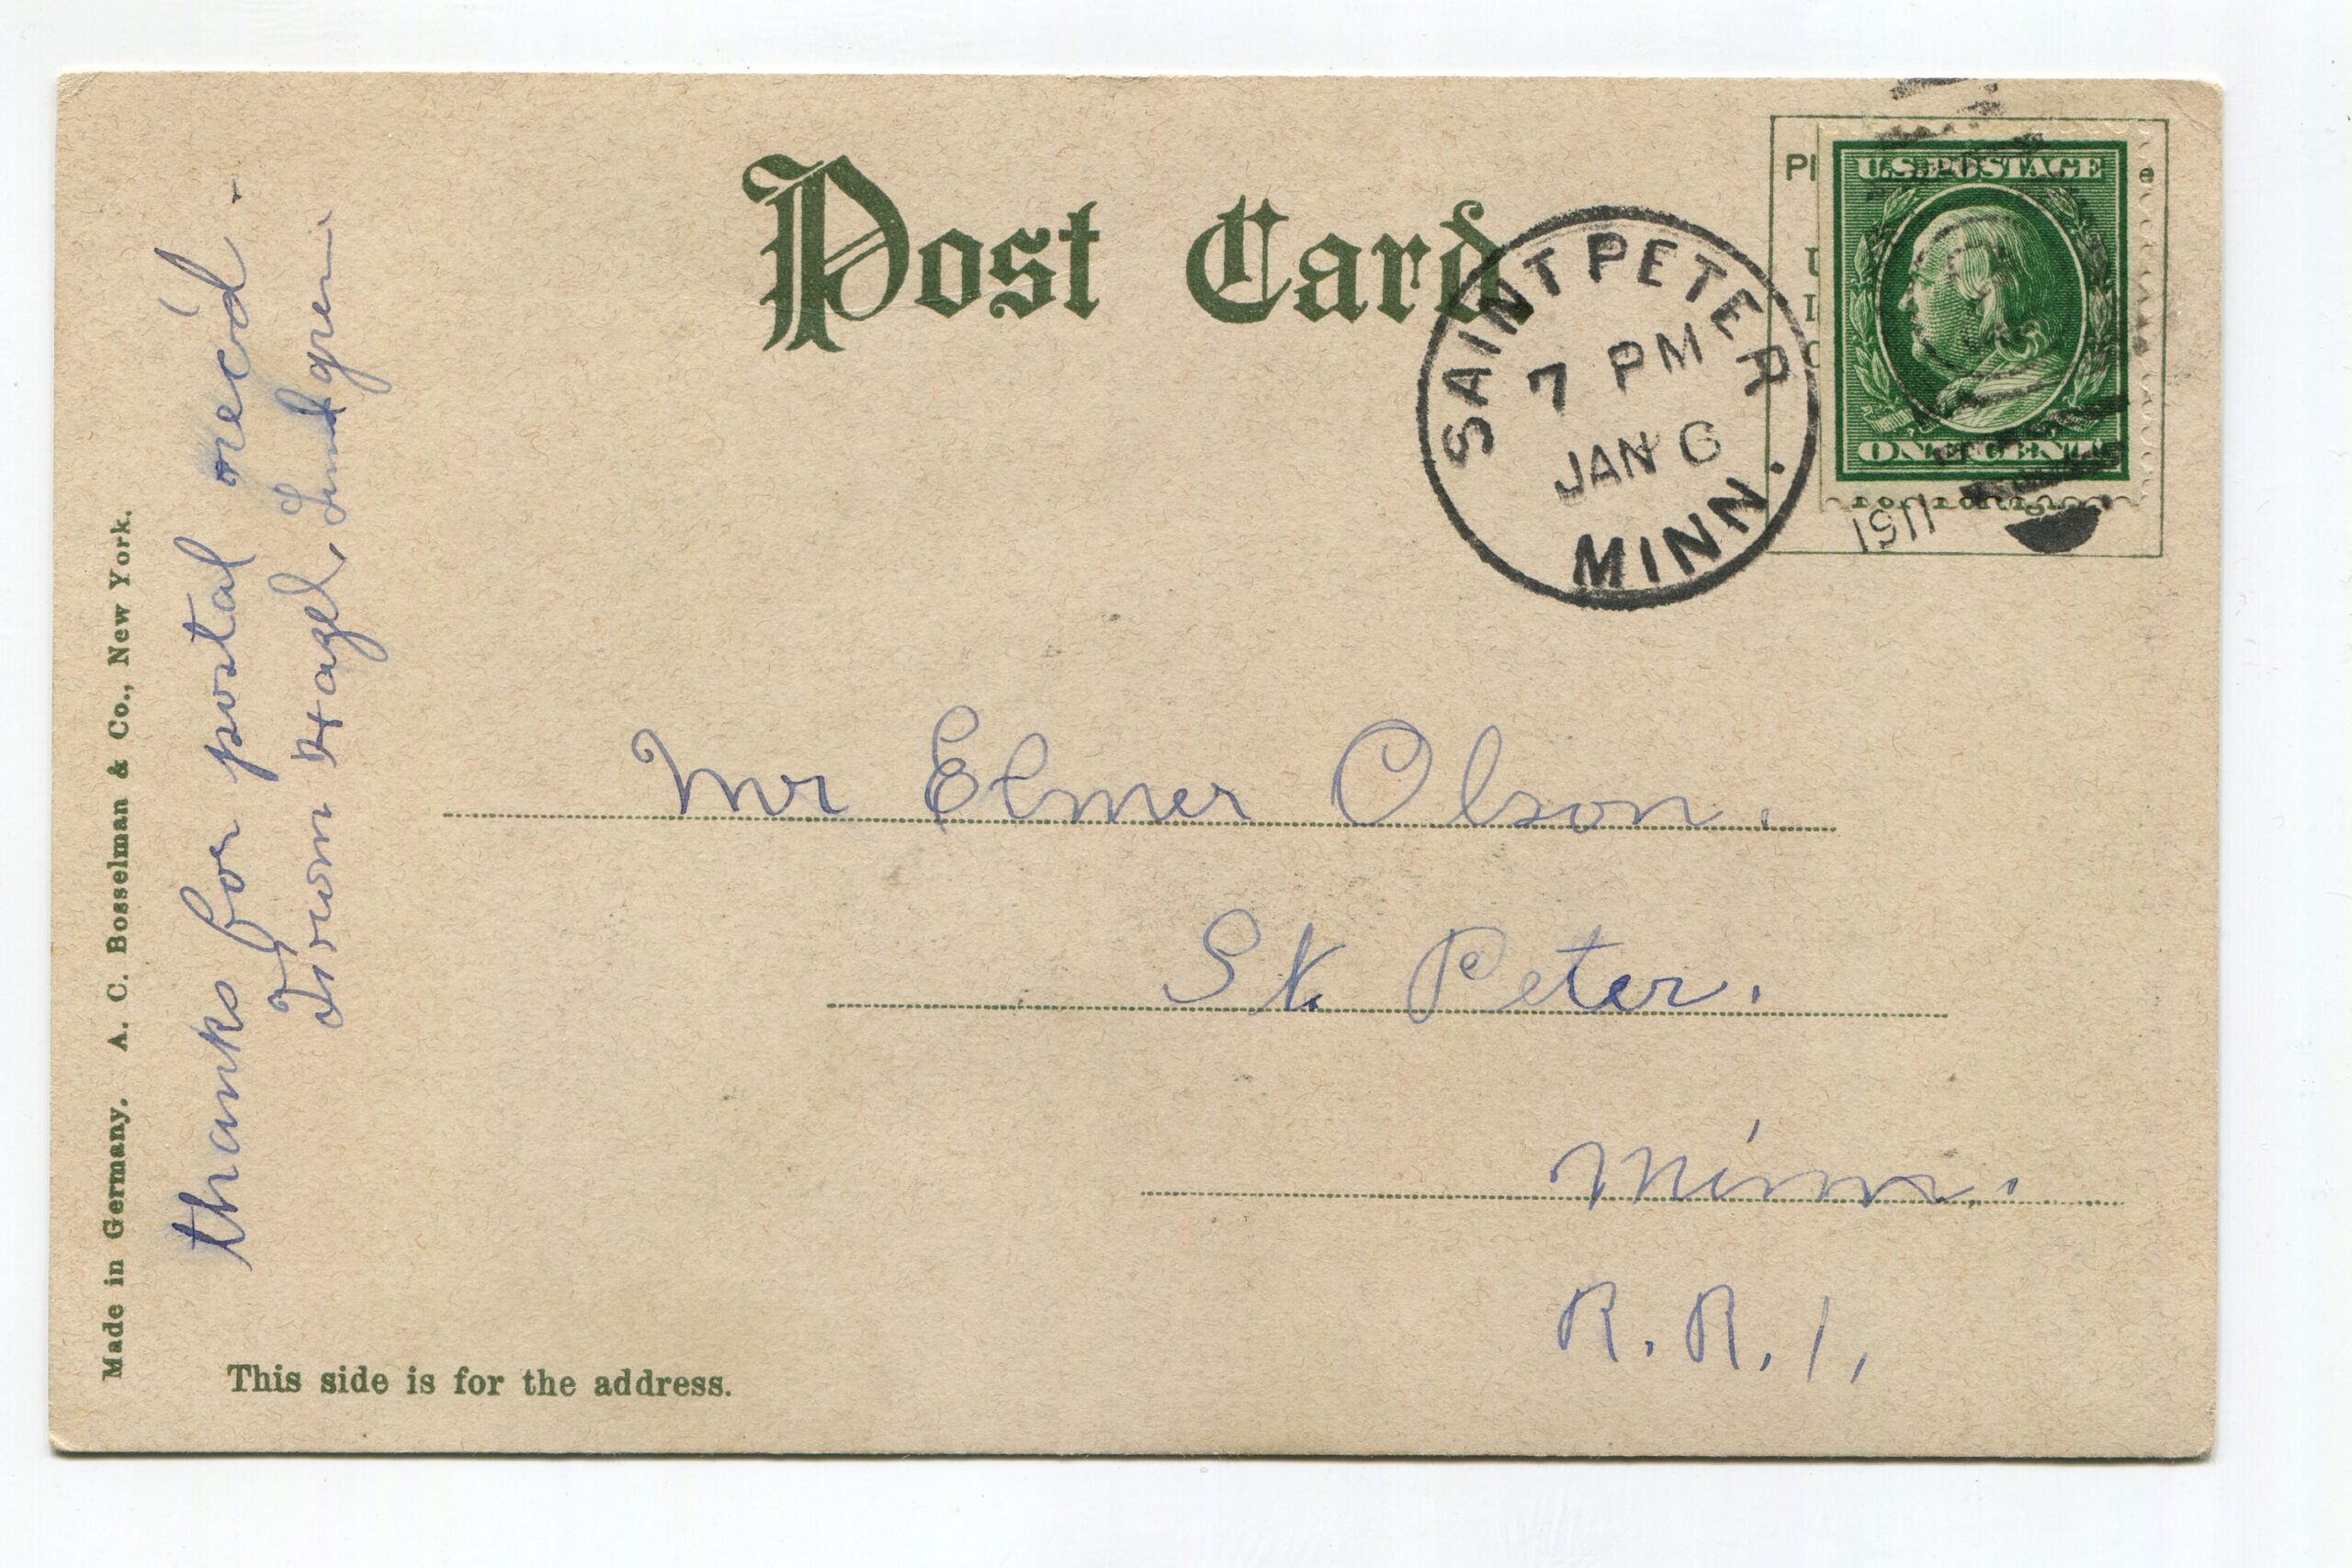 Post Card
SAINT PETER
7 PM
JAN 6
MINN.
U.S. POSTAGE
ONE CENT
Made in Germany. A. C. Bosselman & Co., New York.
thanks for postal rec'd -
From Hazel Lundgren
Mr Elmer Olson.
St. Peter.
Minn.
R. R. 1,
This side is for the address.